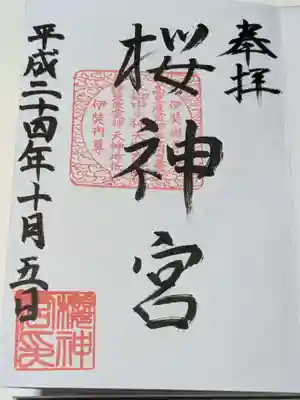 奉拝
桜神宮
平成二十四年十月五日
櫻神宮印